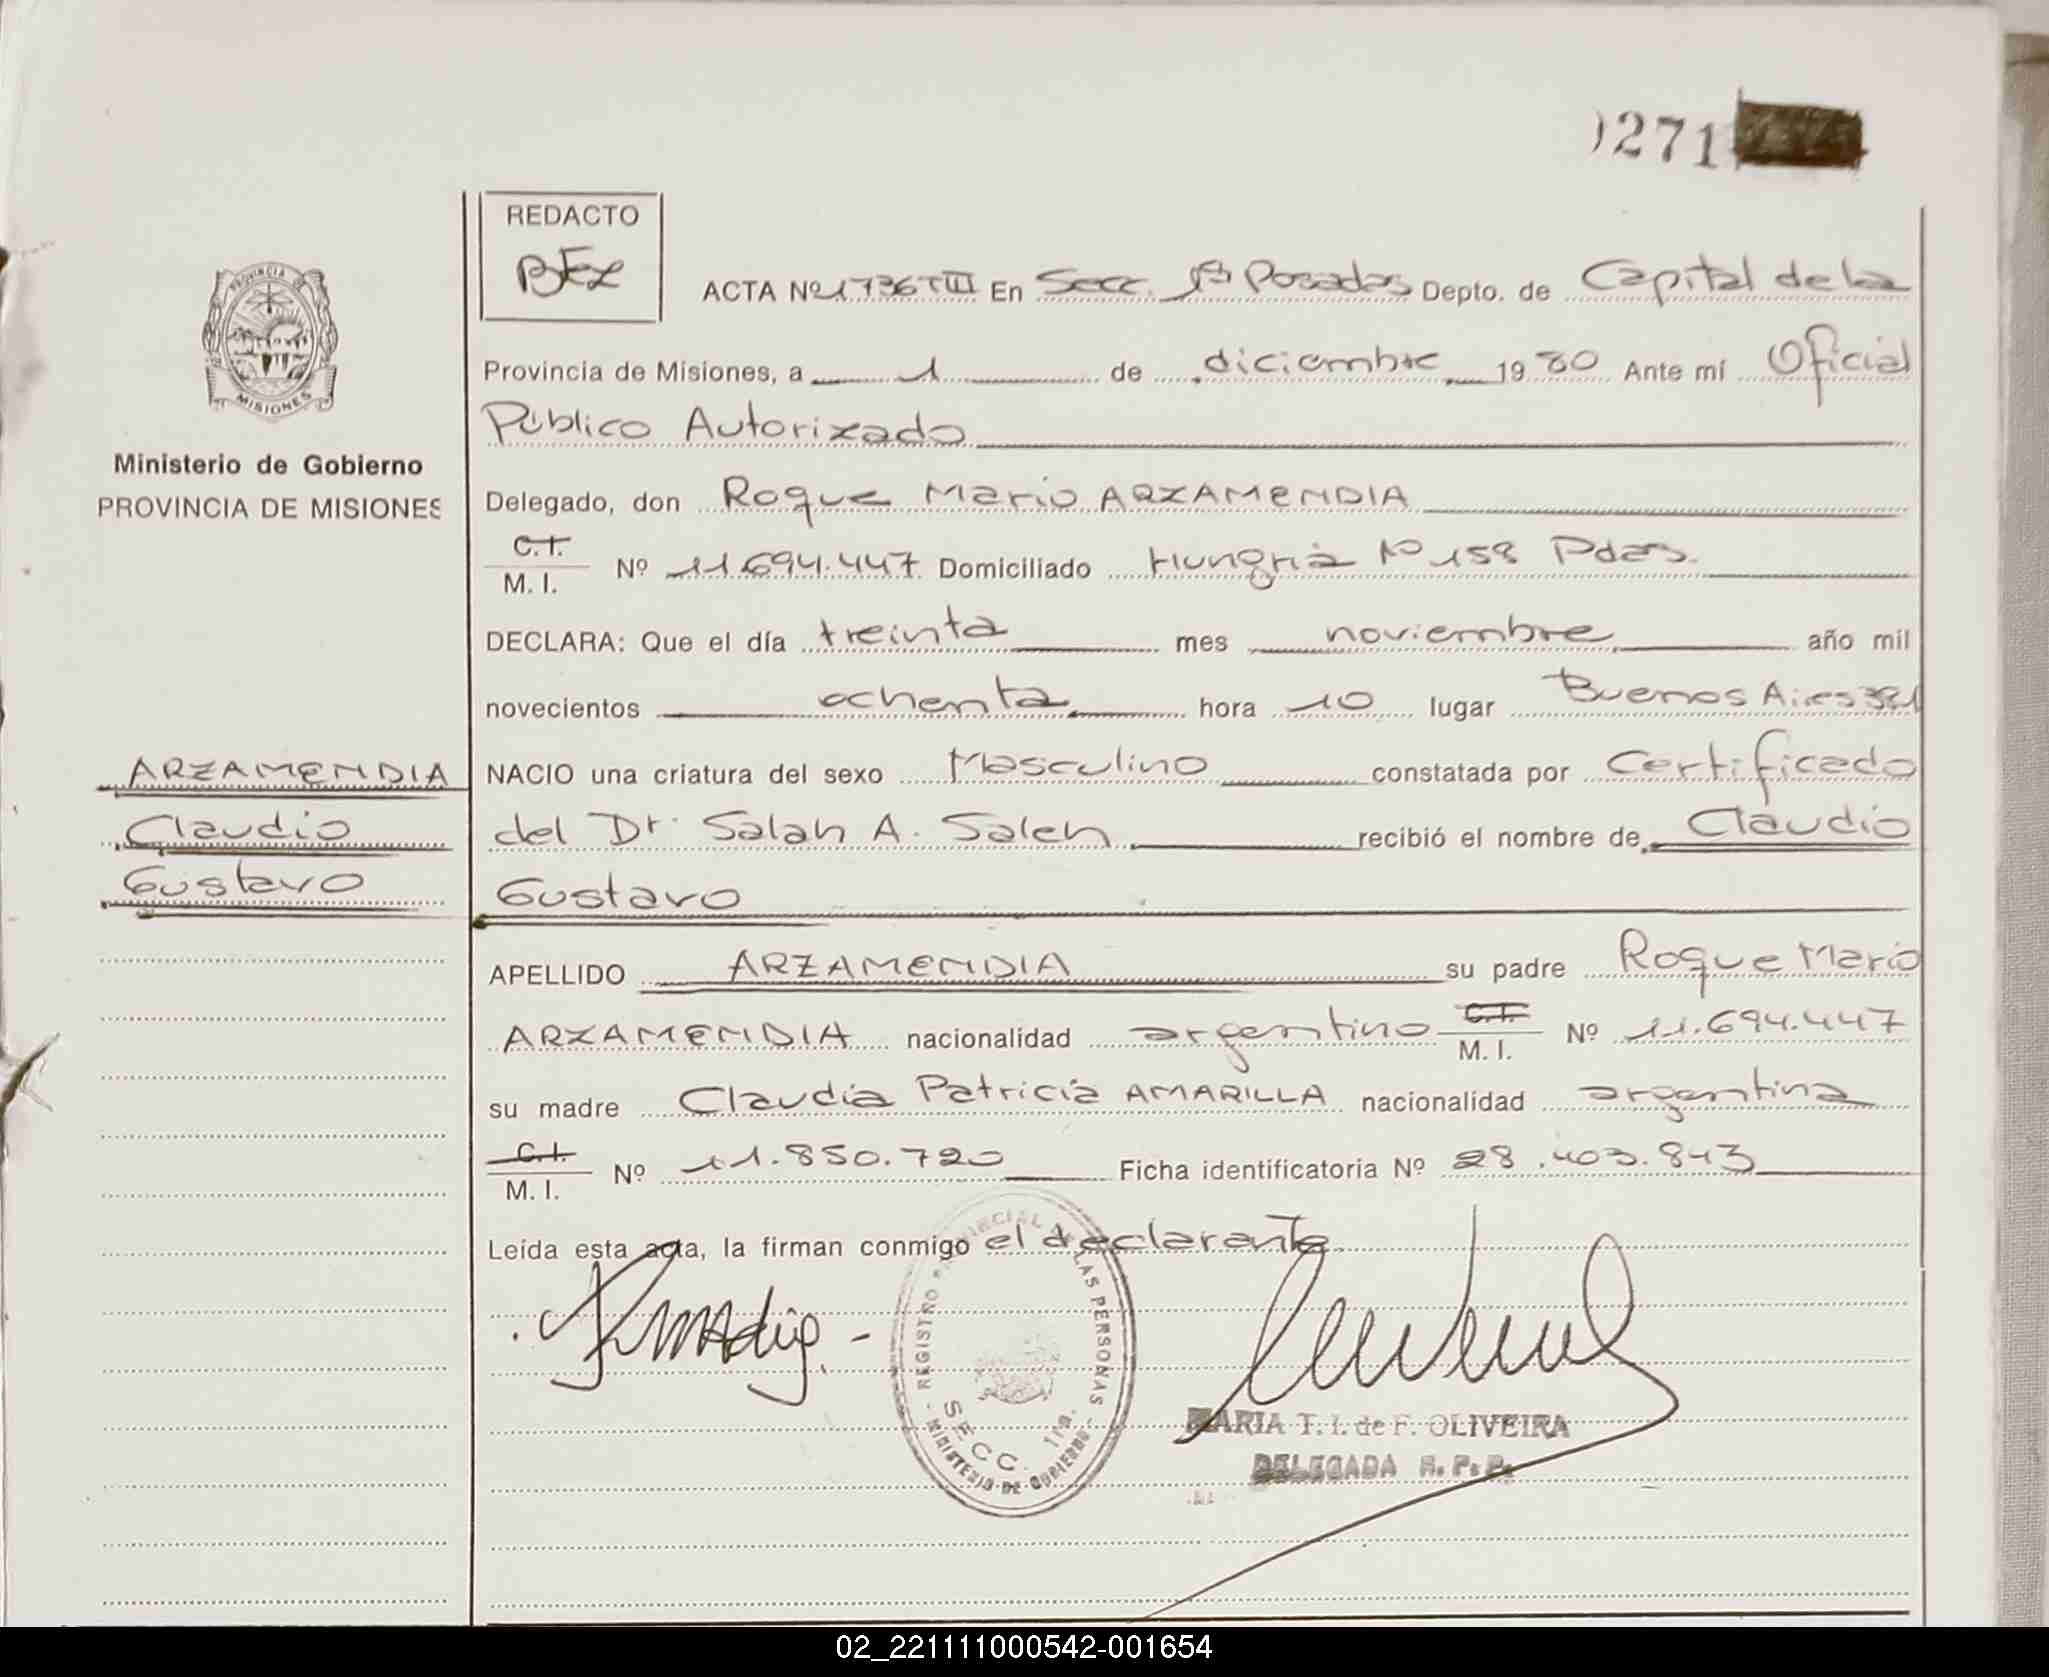 0271
REDACTO
BEZ
ACTA Nº 1736 TIII En Secc. 1ª Posadas Depto. de Capital de la
Provincia de Misiones, a 1 de diciembre 1980 Ante mí Oficial
Público Autorizado
PROVINCIA
MISIONES
Ministerio de Gobierno
PROVINCIA DE MISIONES
Delegado, don Roque Mario ARZAMENDIA
C.I.
M. I. Nº 11.694.447 Domiciliado Hungria Nº 158 Pdas.
DECLARA: Que el día treinta mes noviembre año mil
novecientos ochenta hora 10 lugar Buenos Aires 381
ARZAMENDIA
Claudio
Gustavo
NACIO una criatura del sexo Masculino constatada por Certificado
del Dr. Salah A. Saleh recibió el nombre de Claudio
Gustavo
APELLIDO ARZAMENDIA su padre Roque Mario
ARZAMENDIA nacionalidad argentino C.I. M. I. Nº 11.694.447
su madre Claudia Patricia AMARILLA nacionalidad argentina
C.I.
M. I. Nº 11.850.720 Ficha identificatoria Nº 28.403.843
Leída esta acta, la firman conmigo el declarante
REGISTRO PROVINCIAL DE LAS PERSONAS
SECC. 1ra.
MINISTERIO DE GOBIERNO
MARIA T. I. de F. OLIVEIRA
DELEGADA R. P. P.
02_221111000542-001654